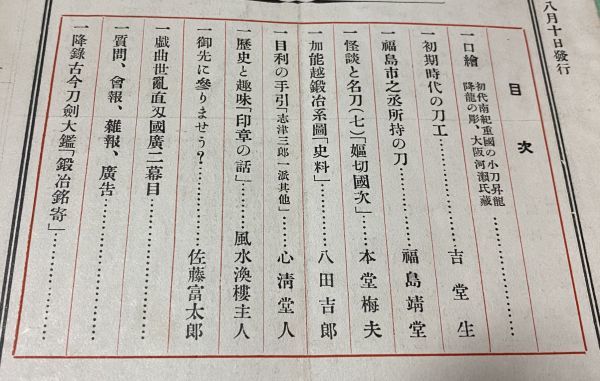 八月十日發行
目次
一口繪 初代南紀重國の小刀昇龍
降龍の彫、大阪河瀬氏藏…………
一初期時代の刀工…………吉堂生
一福島市之丞所持の刀…………福島靖堂
一怪談と名刀(七)「嫗切國次」…………本堂梅夫
一加能越鍛冶系圖「史料」…………八田吉郎
一目利の手引「志津三郎一派其他」…………心淸堂人
一歷史と趣味「印章の話」…………風水渙樓主人
一御先に參りませう?…………佐藤富太郎
一戲曲世亂直刄國廣二幕目…………
一質問、會報、雜報、廣告…………
一降錄古今刀劍大鑑「鍛冶銘寄」…………